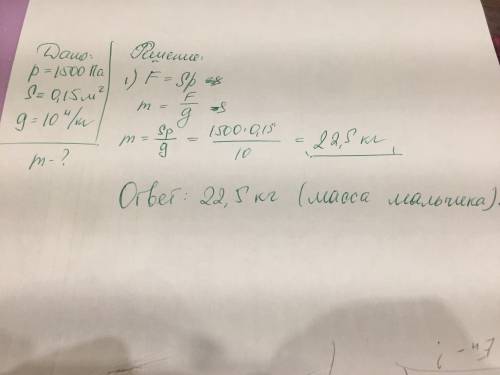 Дано:
p = 1500 Па
S = 0,15 м²
g = 10 н/кг
m - ?
Решение:
1) F = Sp
m = F/g
m = Sp/g = 1500·0,15/10 = 22,5 кг
Ответ: 22,5 кг (масса мальчика).